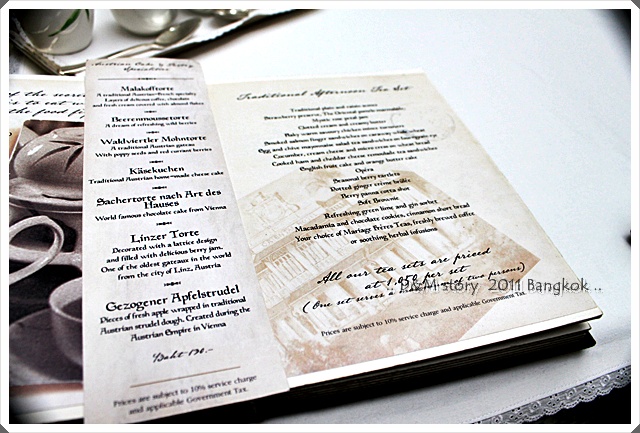 of the
Austrian Cake & Pastry
Specialties
Malakofftorte
A traditional Austrian-French specialty
Layers of delicous coffee, chocolate
and fresh cream covered with almond flakes
Beerenmoussetorte
A dream of refreshing wild berries
Waldviertler Mohntorte
A traditional Austrian gateau
With poppy seeds and red currant berries
Käsekuchen
Traditional Austrian home-made cheese cake
Sachertorte nach Art des
Hauses
World famous chocolate cake from Vienna
Linzer Torte
Decorated with a lattice design
and filled with delicious berry jam.
One of the oldest gateaux in the world
from the city of Linz, Austria
Gezogener Apfelstrudel
Pieces of fresh apple wrapped in traditional
Austrian strudel dough. Created during the
Austrian Empire in Vienna
Baht 170.-
Prices are subject to 10% service charge
and applicable Government Tax.
Traditional Afternoon Tea Set
Traditional plain and raisin scones
Strawberry preserve, The Oriental purple marmalade,
Mystic rose petal jam
Clotted cream and creamy butter
Smoked salmon finger sandwich on caraway whole wheat
Egg and chive mayonnaise salad
Cucumber, cream cheese and micro cream wheat bread
Cooked ham and cheddar cheese
English fruit cake and orange butter cake
Opéra
Seasonal berry tartlets
Potted ginger crème brûlée
Berry panna cotta shot
Soft Brownie
Refreshing green lime and gin sorbet
Macadamia and chocolate cookies, cinnamon short bread
Your choice of Mariage Frères Teas, freshly brewed coffee
or soothing herbal infusions
All our tea sets are priced
at 1,050 per set
(One set serves two persons)
Prices are subject to 10% service charge and applicable Government Tax.
P&M story 2011 Bangkok ..